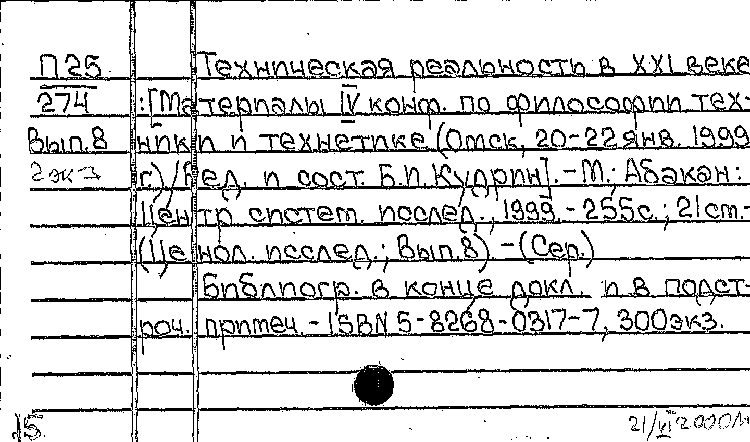 П25 Техническая реальность в XXI веке
274 :[Материалы IV конф. по философии тех-
Вып.8 ники и технетике (Омск, 20-22 янв. 1999
2 экз г.)/Ред. и сост. Б.И.Кудрин].-М.; Абакан:
Центр систем. исслед., 1999.-255с.; 21см.-
(Ценол. исслед.; Вып.8).-(Сер.)
Библиогр. в конце докл. и в подст-
роч. примеч.-ISBN 5-8268-0317-7, 300экз.
15 21/VI 2000